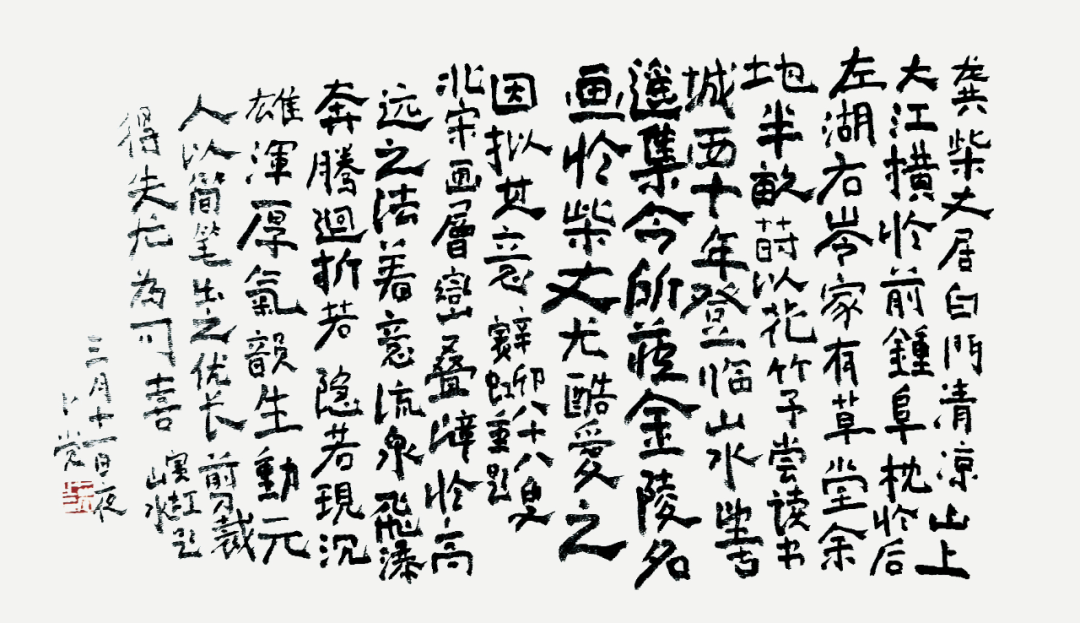 龚柴丈居白门清凉山上
大江横于前鍾阜枕于后
左湖右岑家有草堂余
地半畝莳以花竹予尝读书
城西十年登临山水
遥集今所蔵金陵名
画于柴丈尤酷爱之
因拟其意辛卯八十八叟
賓虹重题
北宋画層巒叠嶂于高
远之法着意流泉飛瀑
奔腾迴折若隐若現沉
雄渾厚氣韻生動元
人以简笔出之优长剪裁
得失尤为可喜
賓虹题
山水
三月十一日夜
卜觉